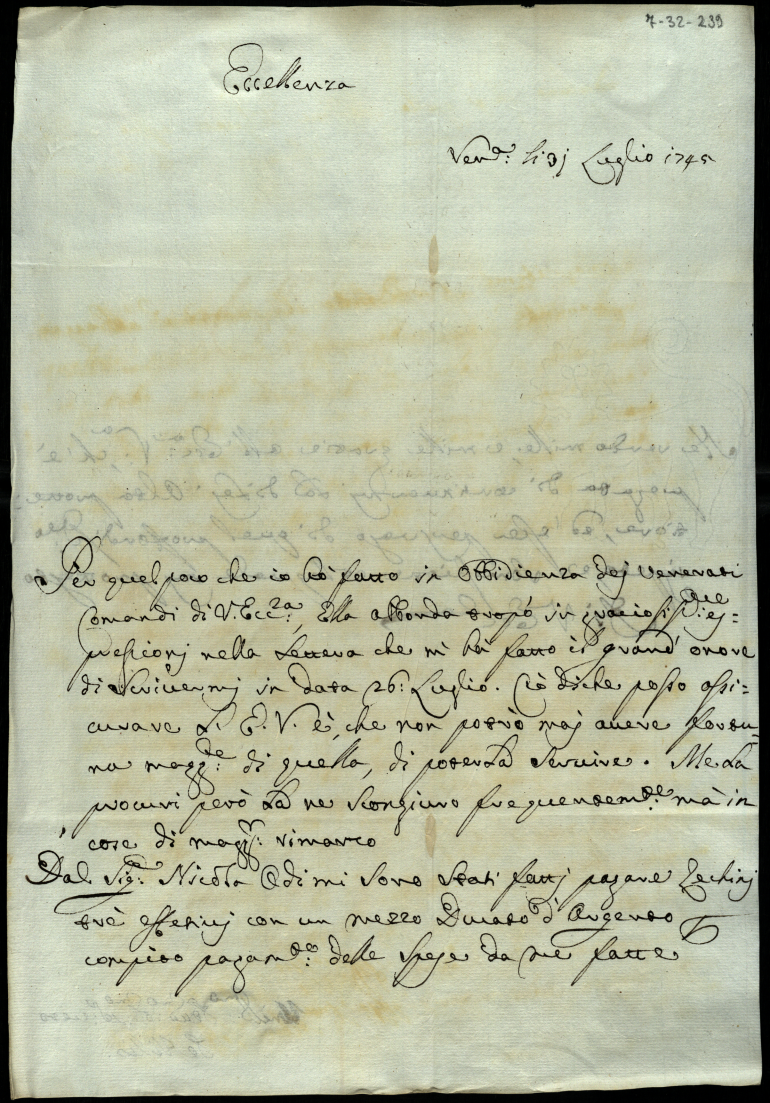 7-32-239
Eccellenza
Ven.ª: li 31 Luglio 1745
Per quel poco che io hò fatto in Obbidienza dej venerati
Comandi di V. Ecc.ᶻᵃ, Ella abbonda tropo in graciosis.ᵐᵉ es=
pressionj nella Lettera che mi hà fatto il grand' onore
di Scrivermj in data 26: Luglio. Ciò diche posso assi=
curare L'. E. V. è, che non potrò maj avere fortu=
na magg.ʳᵉ: di quella, di poterLa Servire. Me La
procuri però La ne Scongiuro frequentem.ᵗᵉ: mà in
cose di magg.ʳ: rimarco
Dal Sig.ʳᵉ: Nicola Odi mi sono stati fattj pagare Zechinj
trè effetivj con un mezzo Ducato d'Argento
compito pagam.ᵗᵒ: delle Spese da me fatte